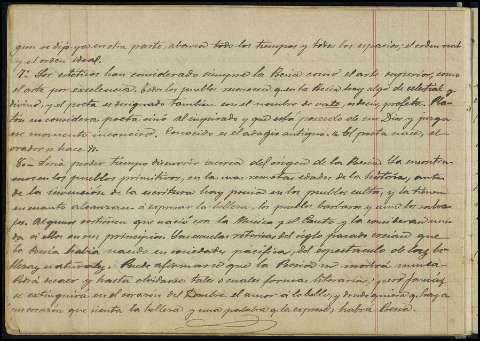 que se dijo ya en otra parte, abarca todo los tiempos y todos los espacios; el orden real
y el orden ideal.
7º Los estéticos han considerado siempre la Poesía como el arte superior, como
el arte por excelencia. Todos los pueblos reconocen que la Poesía hay algo de celestial y
divino, y el poeta es designado tambien con el nombre de vate, ó profeta. Pla-
ton no considera poeta sino al inspirado y que está poseido de un Dios y
no momento inconcien. Conocido es el adagio antiguo: El poeta nace, el
orador se hace.
8º Seria perder tiempo discurrir acerca del origen de la Poesía. La encontra-
mos en los pueblos primitivos, en las mas remotas edades de la historia, antes
de la invencion de la escritura hay poesía en los pueblos cultos, y la tienen
en cuanto alcanzan á expresar la belleza, los pueblos barbaros y aun los salva-
jes. Algunos sostienen que nació con la Musica y el Canto y la consideran uni-
da á ellos en su principio. Las escuelas retoricas del siglo pasado creian que
la Poesía habia nacido en sociedades pacificas, del espectaculo de las be-
llezas naturales. Puede afirmarse que la Poesía no morirá nunca.
Podrá decaer, y hasta olvidarse tales ó cuales formas literarias; pero jamás
se extinguirá en el corazon del Hombre el amor á lo bello, y donde quiera q. haya
un corazon que sienta la belleza y una palabra q. la exprese, habrá Poesía.